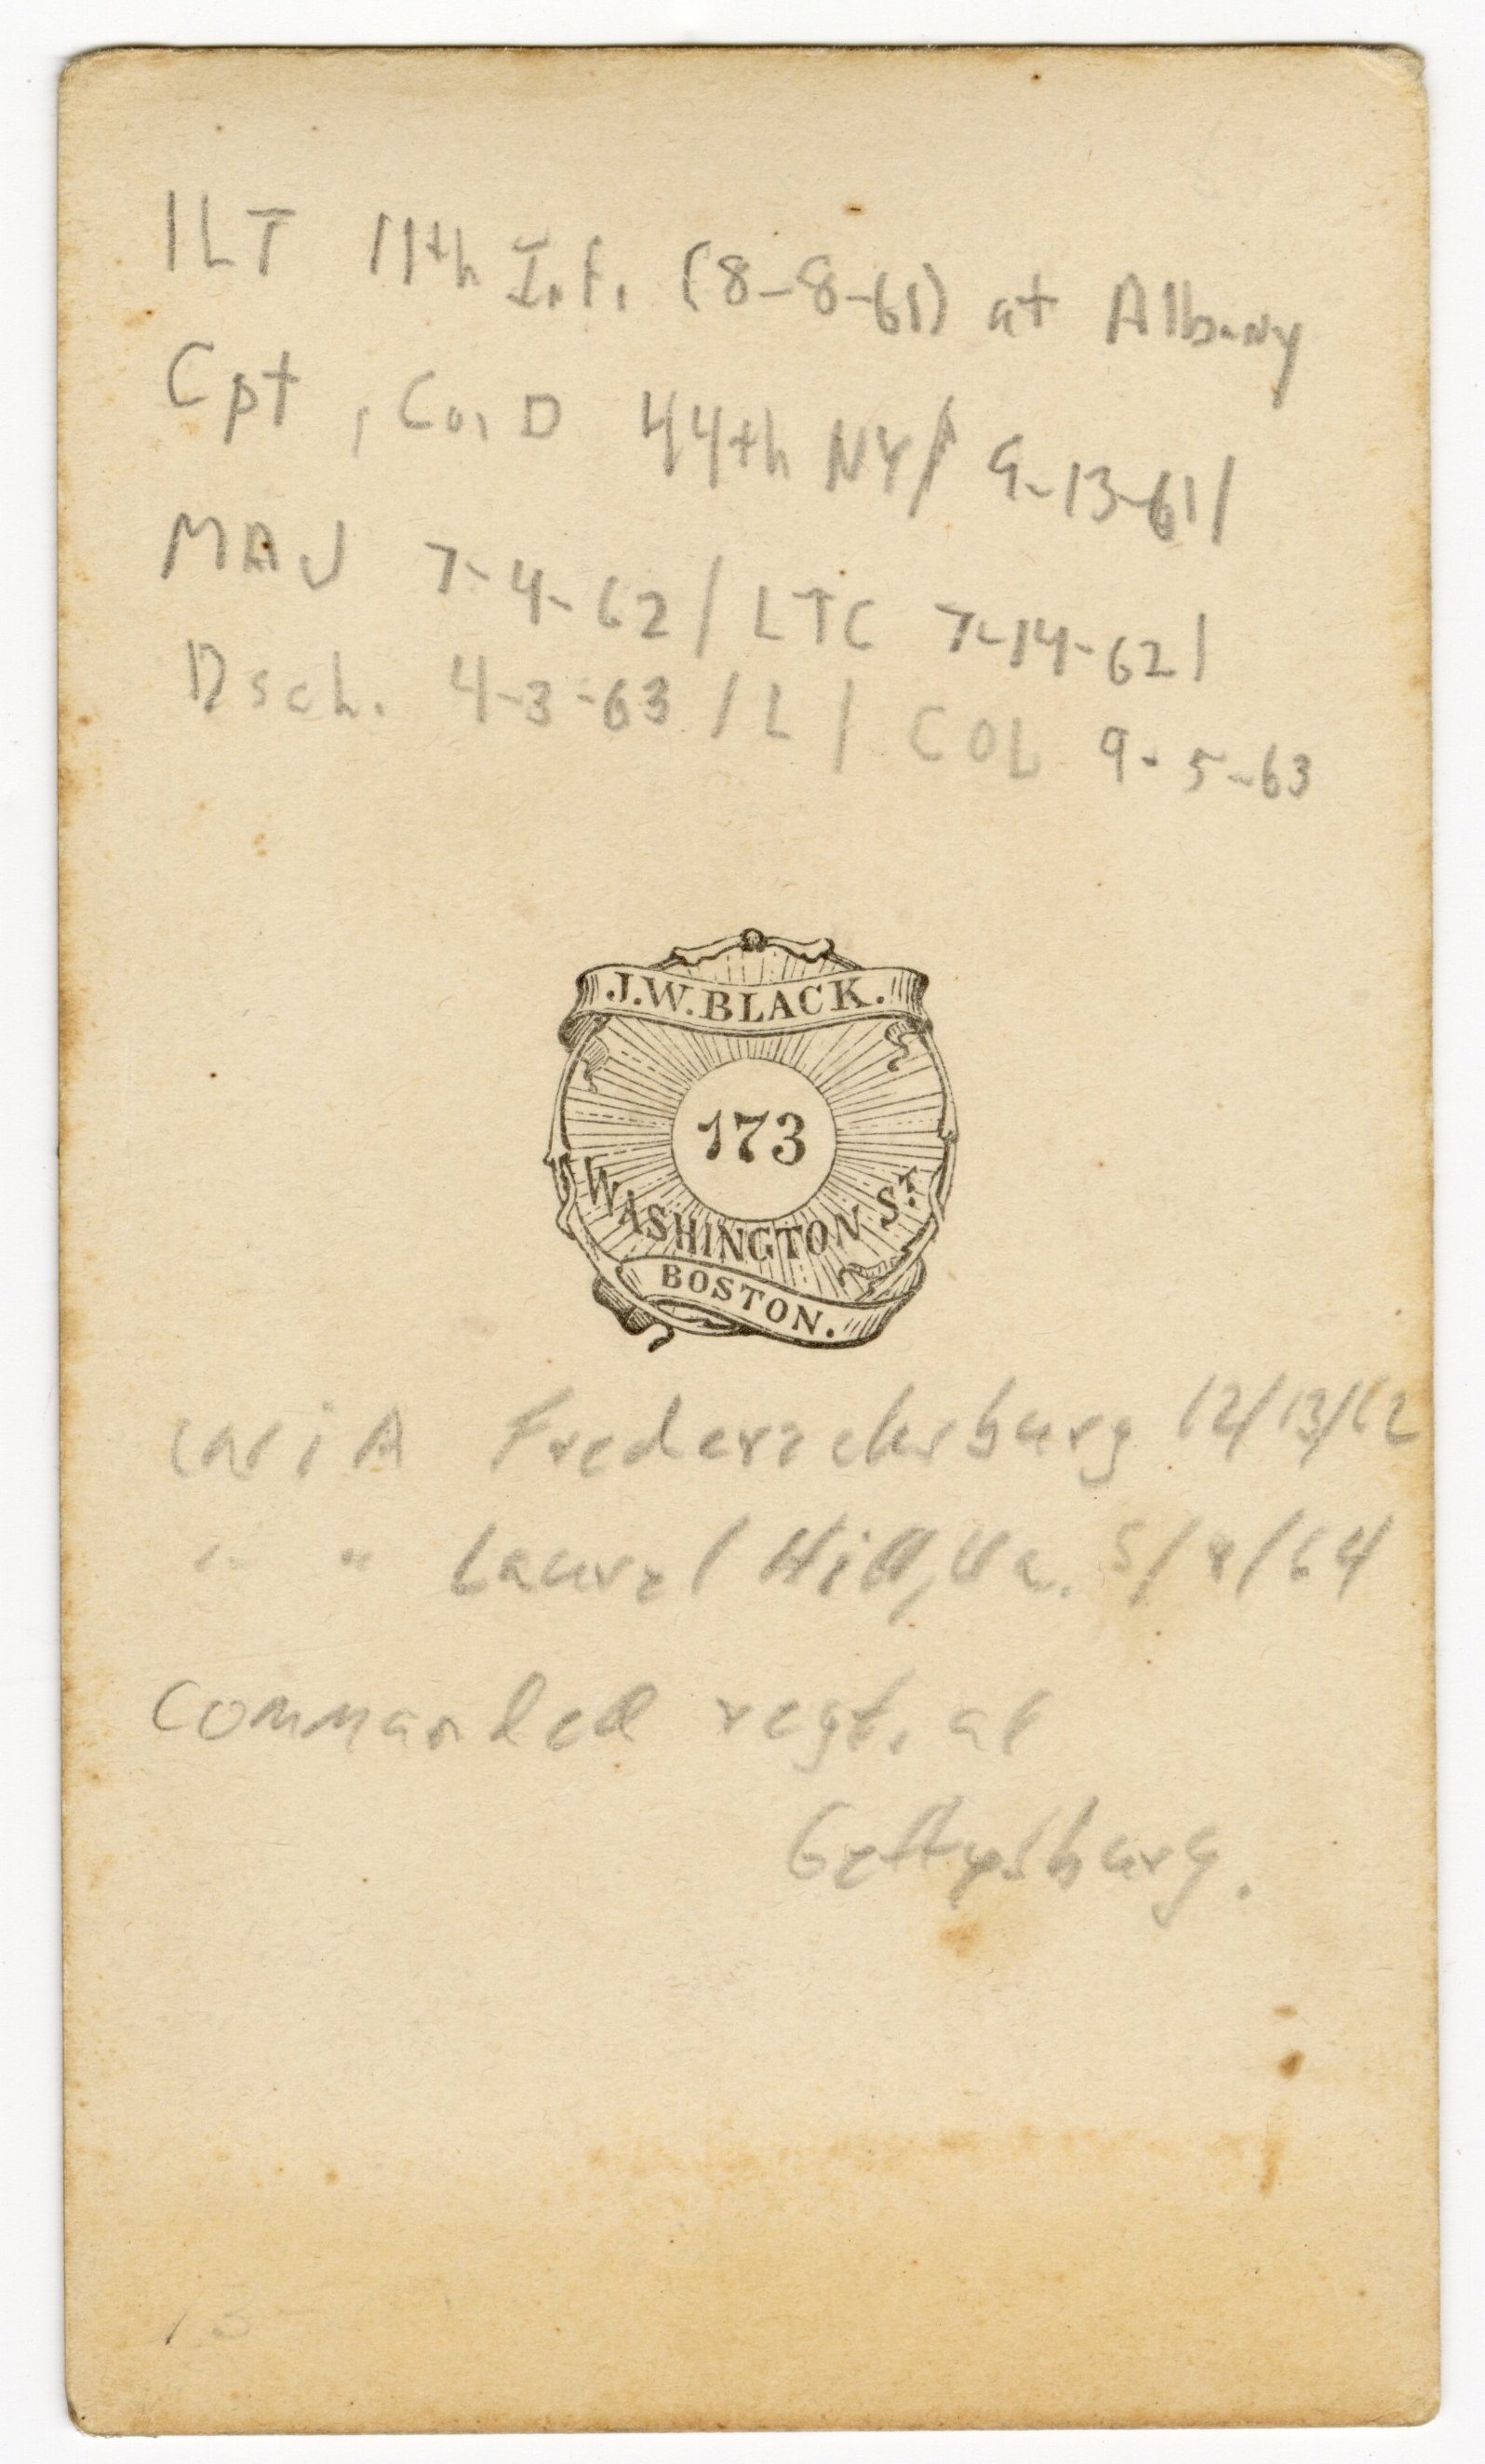 1LT 11th Inf. (8-8-61) at Albany
Cpt, Co, D 44th NY/ 9-13-61/
MAJ 7-4-62/ LTC 7-14-62/
Dsch. 4-3-63 /L/ COL 9-5-63
J.W. BLACK.
173
WASHINGTON ST.
BOSTON.
WiA Fredericksburg 12/13/62
" " Laurel Hill, Va. 5/8/64
Commanded regt. at
Gettysburg.